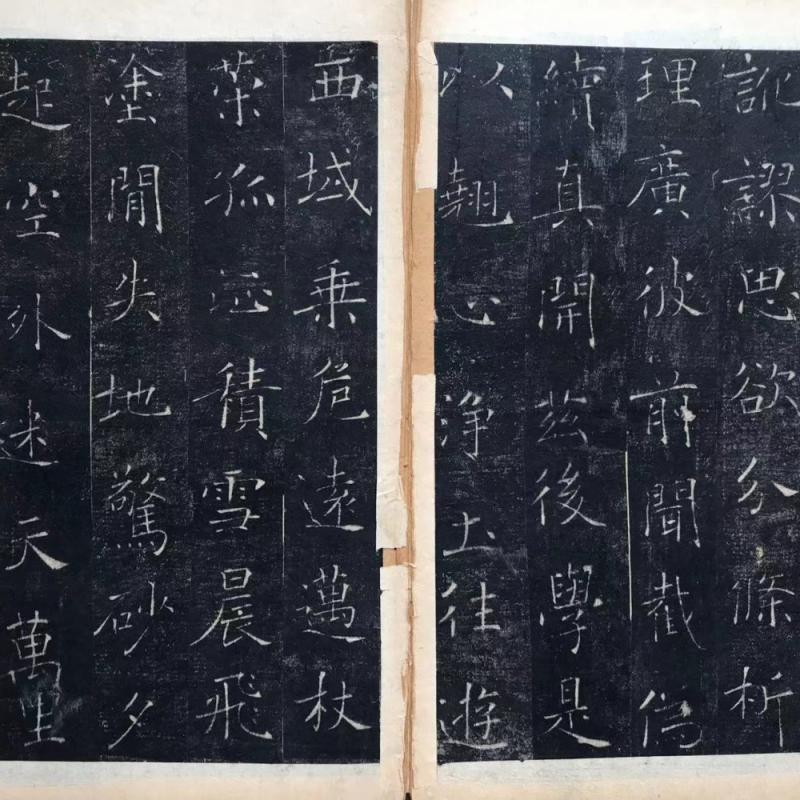 訛謬思欲分條析
理廣彼前聞截偽
續真開茲後學是
以翹心淨土往遊
西域乗危遠邁杖
策孤征積雪晨飛
塗間失地驚砂夕
起空外迷天萬里